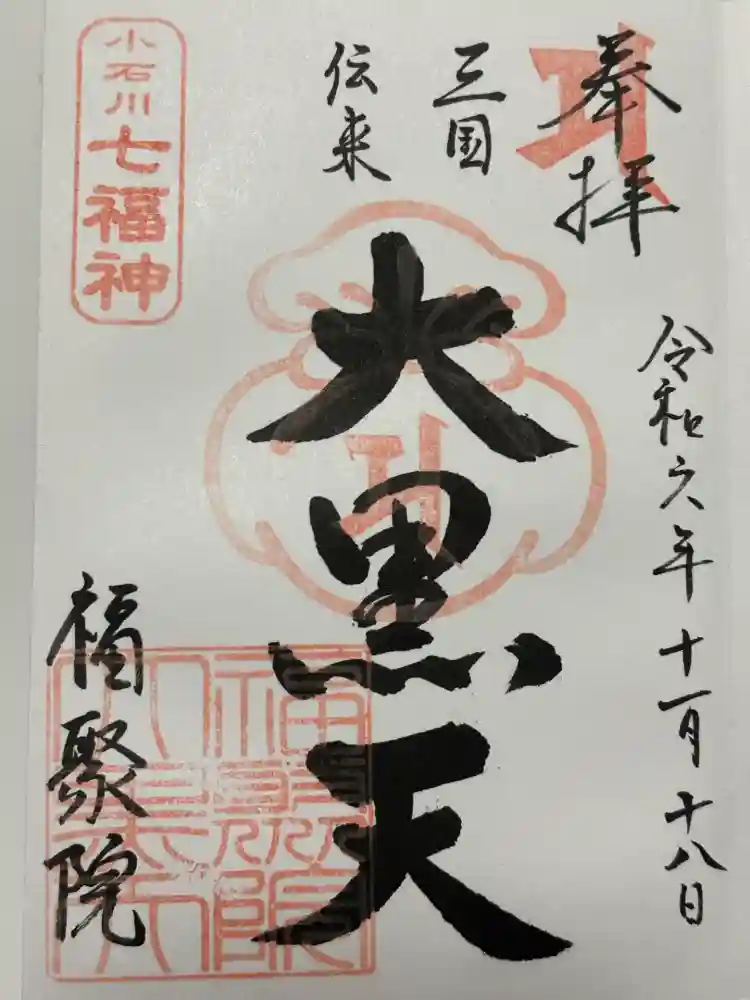 奉拝
令和六年十一月十八日
三国
伝来
大黒天
小石川七福神
福聚院